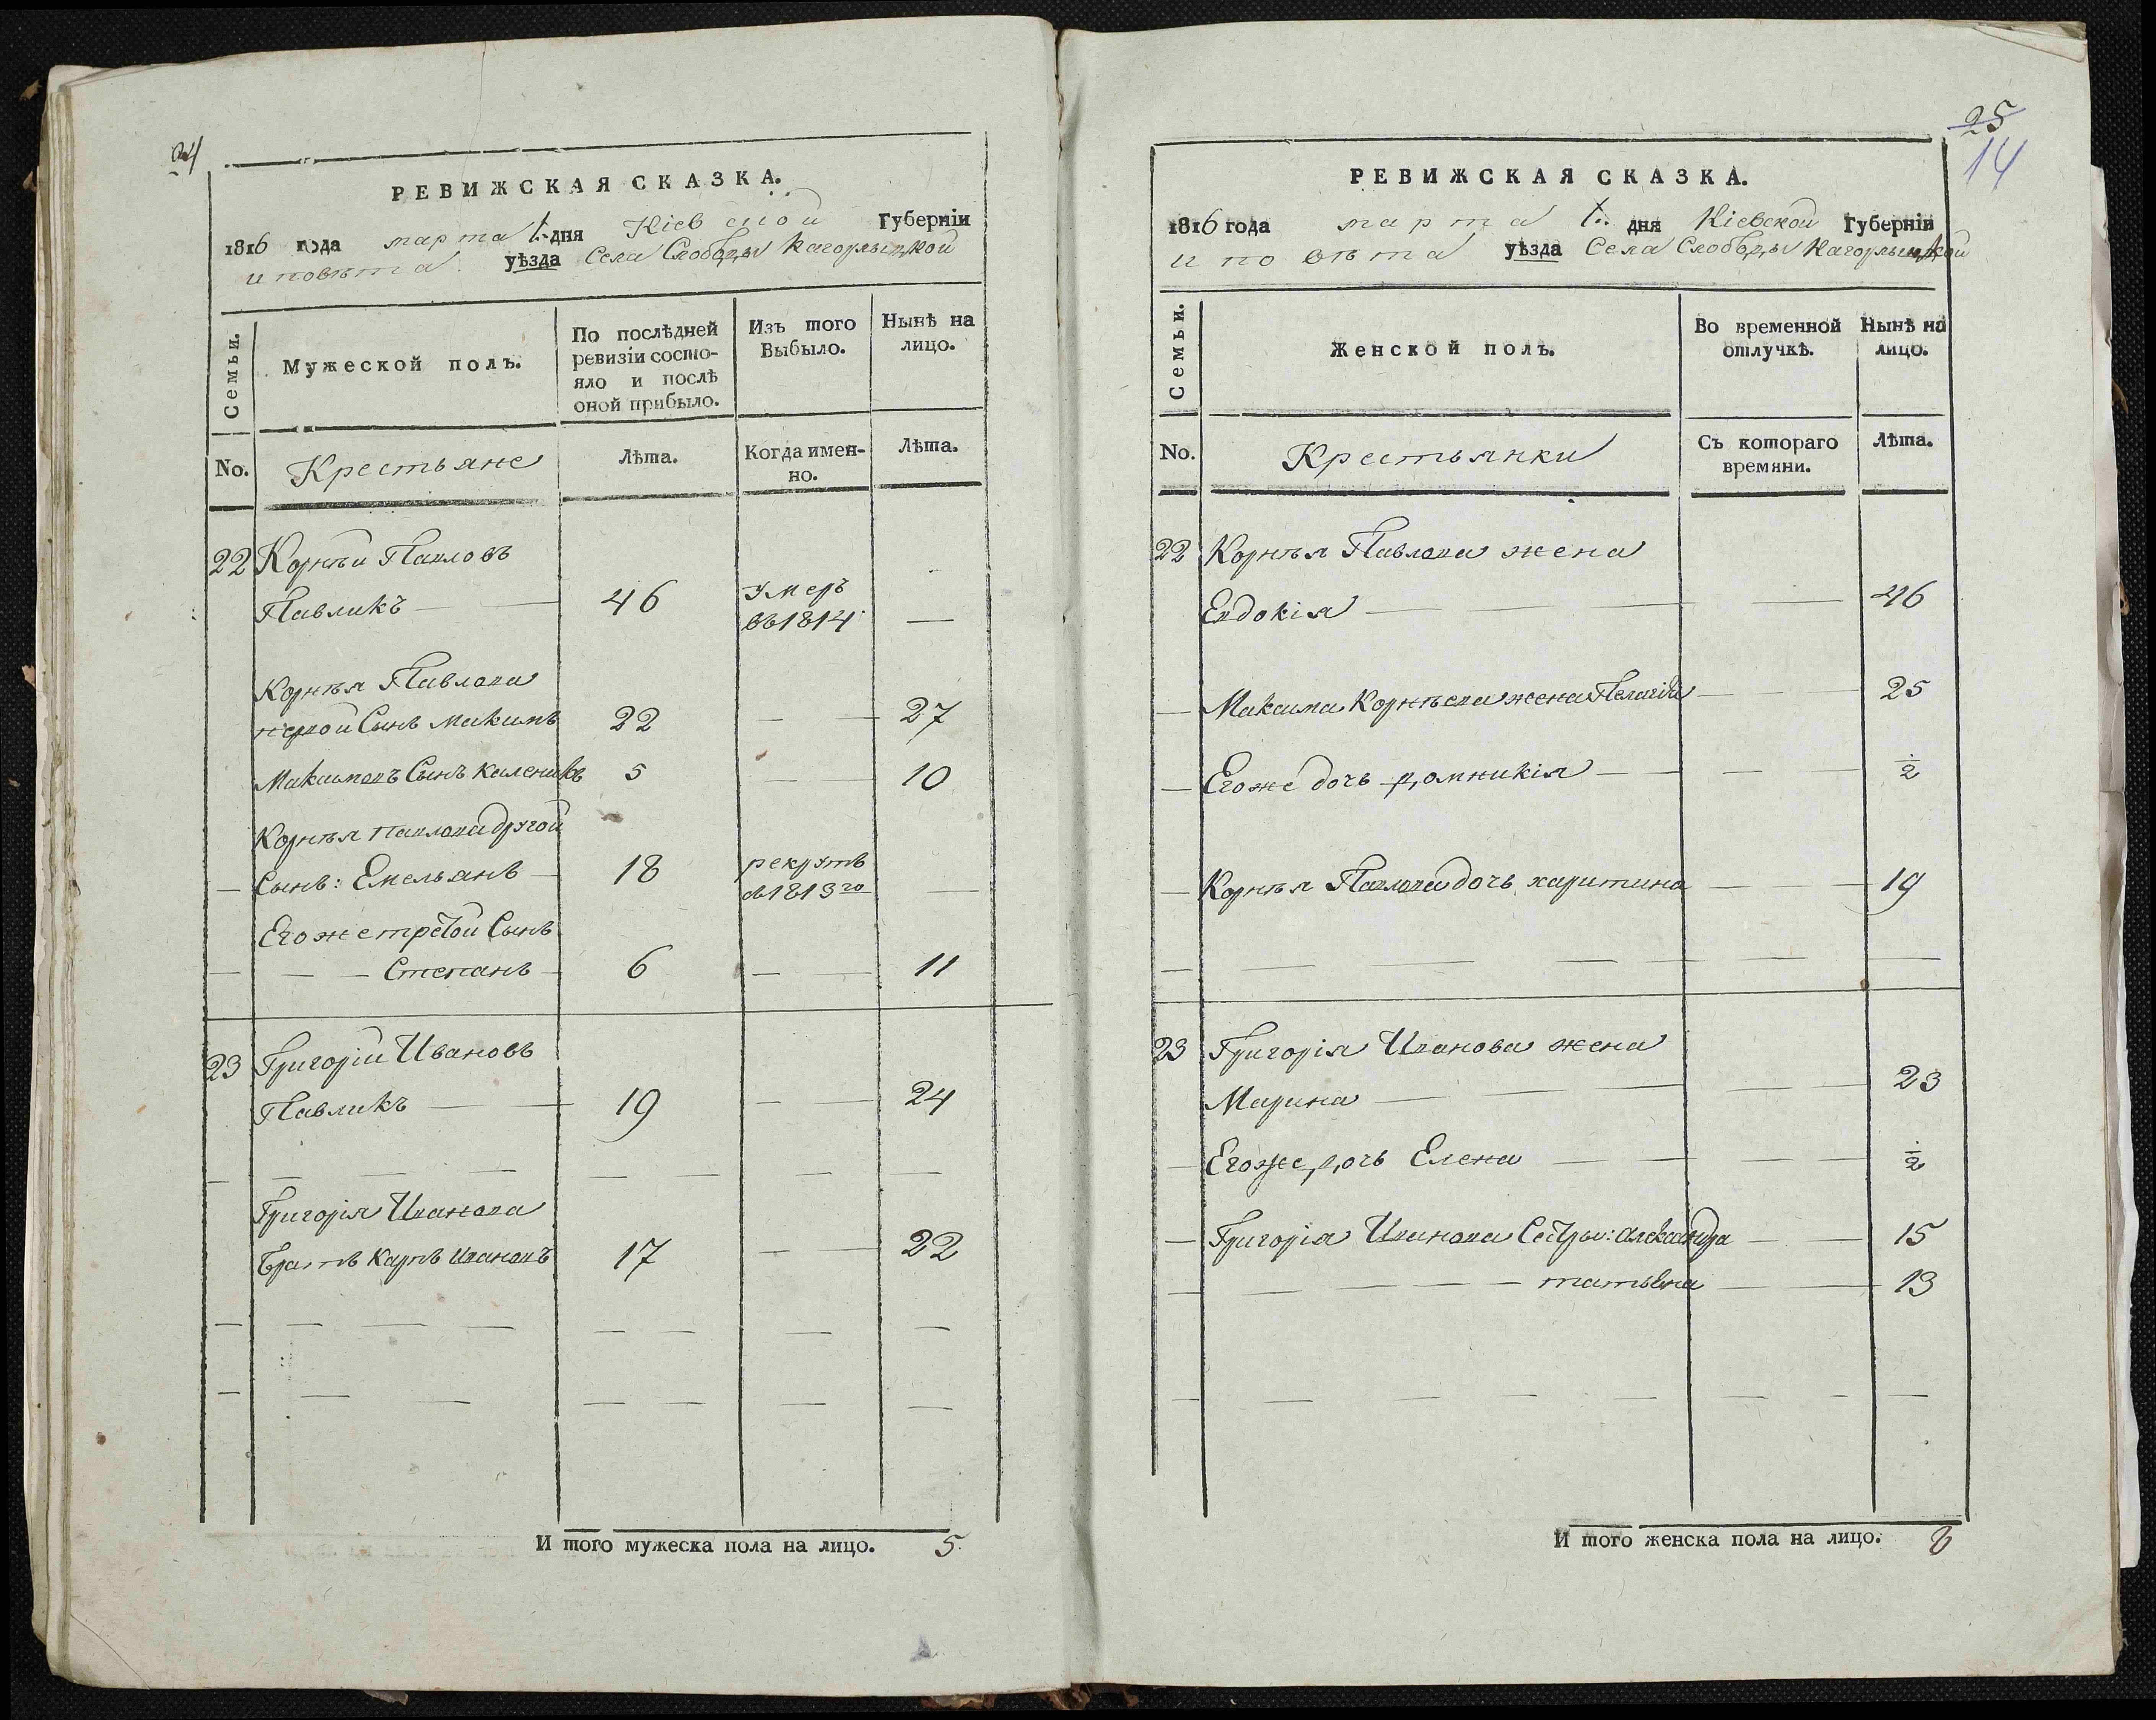 24
РЕВИЖСКАЯ СКАЗКА.
1816 года марта 1. дня Кіевской Губерніи
и повѣта уѣзда Села Слободы Кагорлыцкой
Семьи.
Мужеской полъ.
По послѣдней ревизіи состояло и послѣ оной прибыло.
Изъ того Выбыло.
Нынѣ на лицо.
No.
Крестьяне
Лѣта.
Когда именно.
Лѣта.
22 Корнѣй Павловъ
Павликъ — — 46 Умеръ въ 1814 —
Корнѣя Павлова
первой Сынъ Максимъ 22 — — 27
Максимовъ Сынъ Каленикъ 5 — — 10
Корнѣя Павлова другой
— Сынъ: Емельянъ — 18 рекрутъ въ 1813го —
Его же третой Сынъ
— — — Степанъ — 6 — — 11
23 Григорій Ивановъ
Павликъ — — 19 — — 24
Григорія Иванова
Братъ Карпъ Ивановъ 17 — — 22
И того мужеска пола на лицо. 5.
25
14
РЕВИЖСКАЯ СКАЗКА.
1816 года марта 1. дня Кіевской Губерніи
и повѣта уѣзда Села Слободы Кагорлыцкой
Семьи.
Женской полъ.
Во временной отлучкѣ.
Нынѣ на лицо.
No.
Крестьянки
Съ котораго времяни.
Лѣта.
22 Корнѣя Павлова жена
Евдокія — — — 46
— Максима Корнѣева жена Пелагія — — 25
— Его же дочь домникія — — — 1/2
— Корнѣя Павлова дочь харитина — — 19
23 Григорія Иванова жена
Марина — — — — 23
— Его же дочь Елена — — — — 1/2
— Григорія Иванова Сестры: Александра — — 15
— — — — татьяна — — 13
И того женска пола на лицо. 8